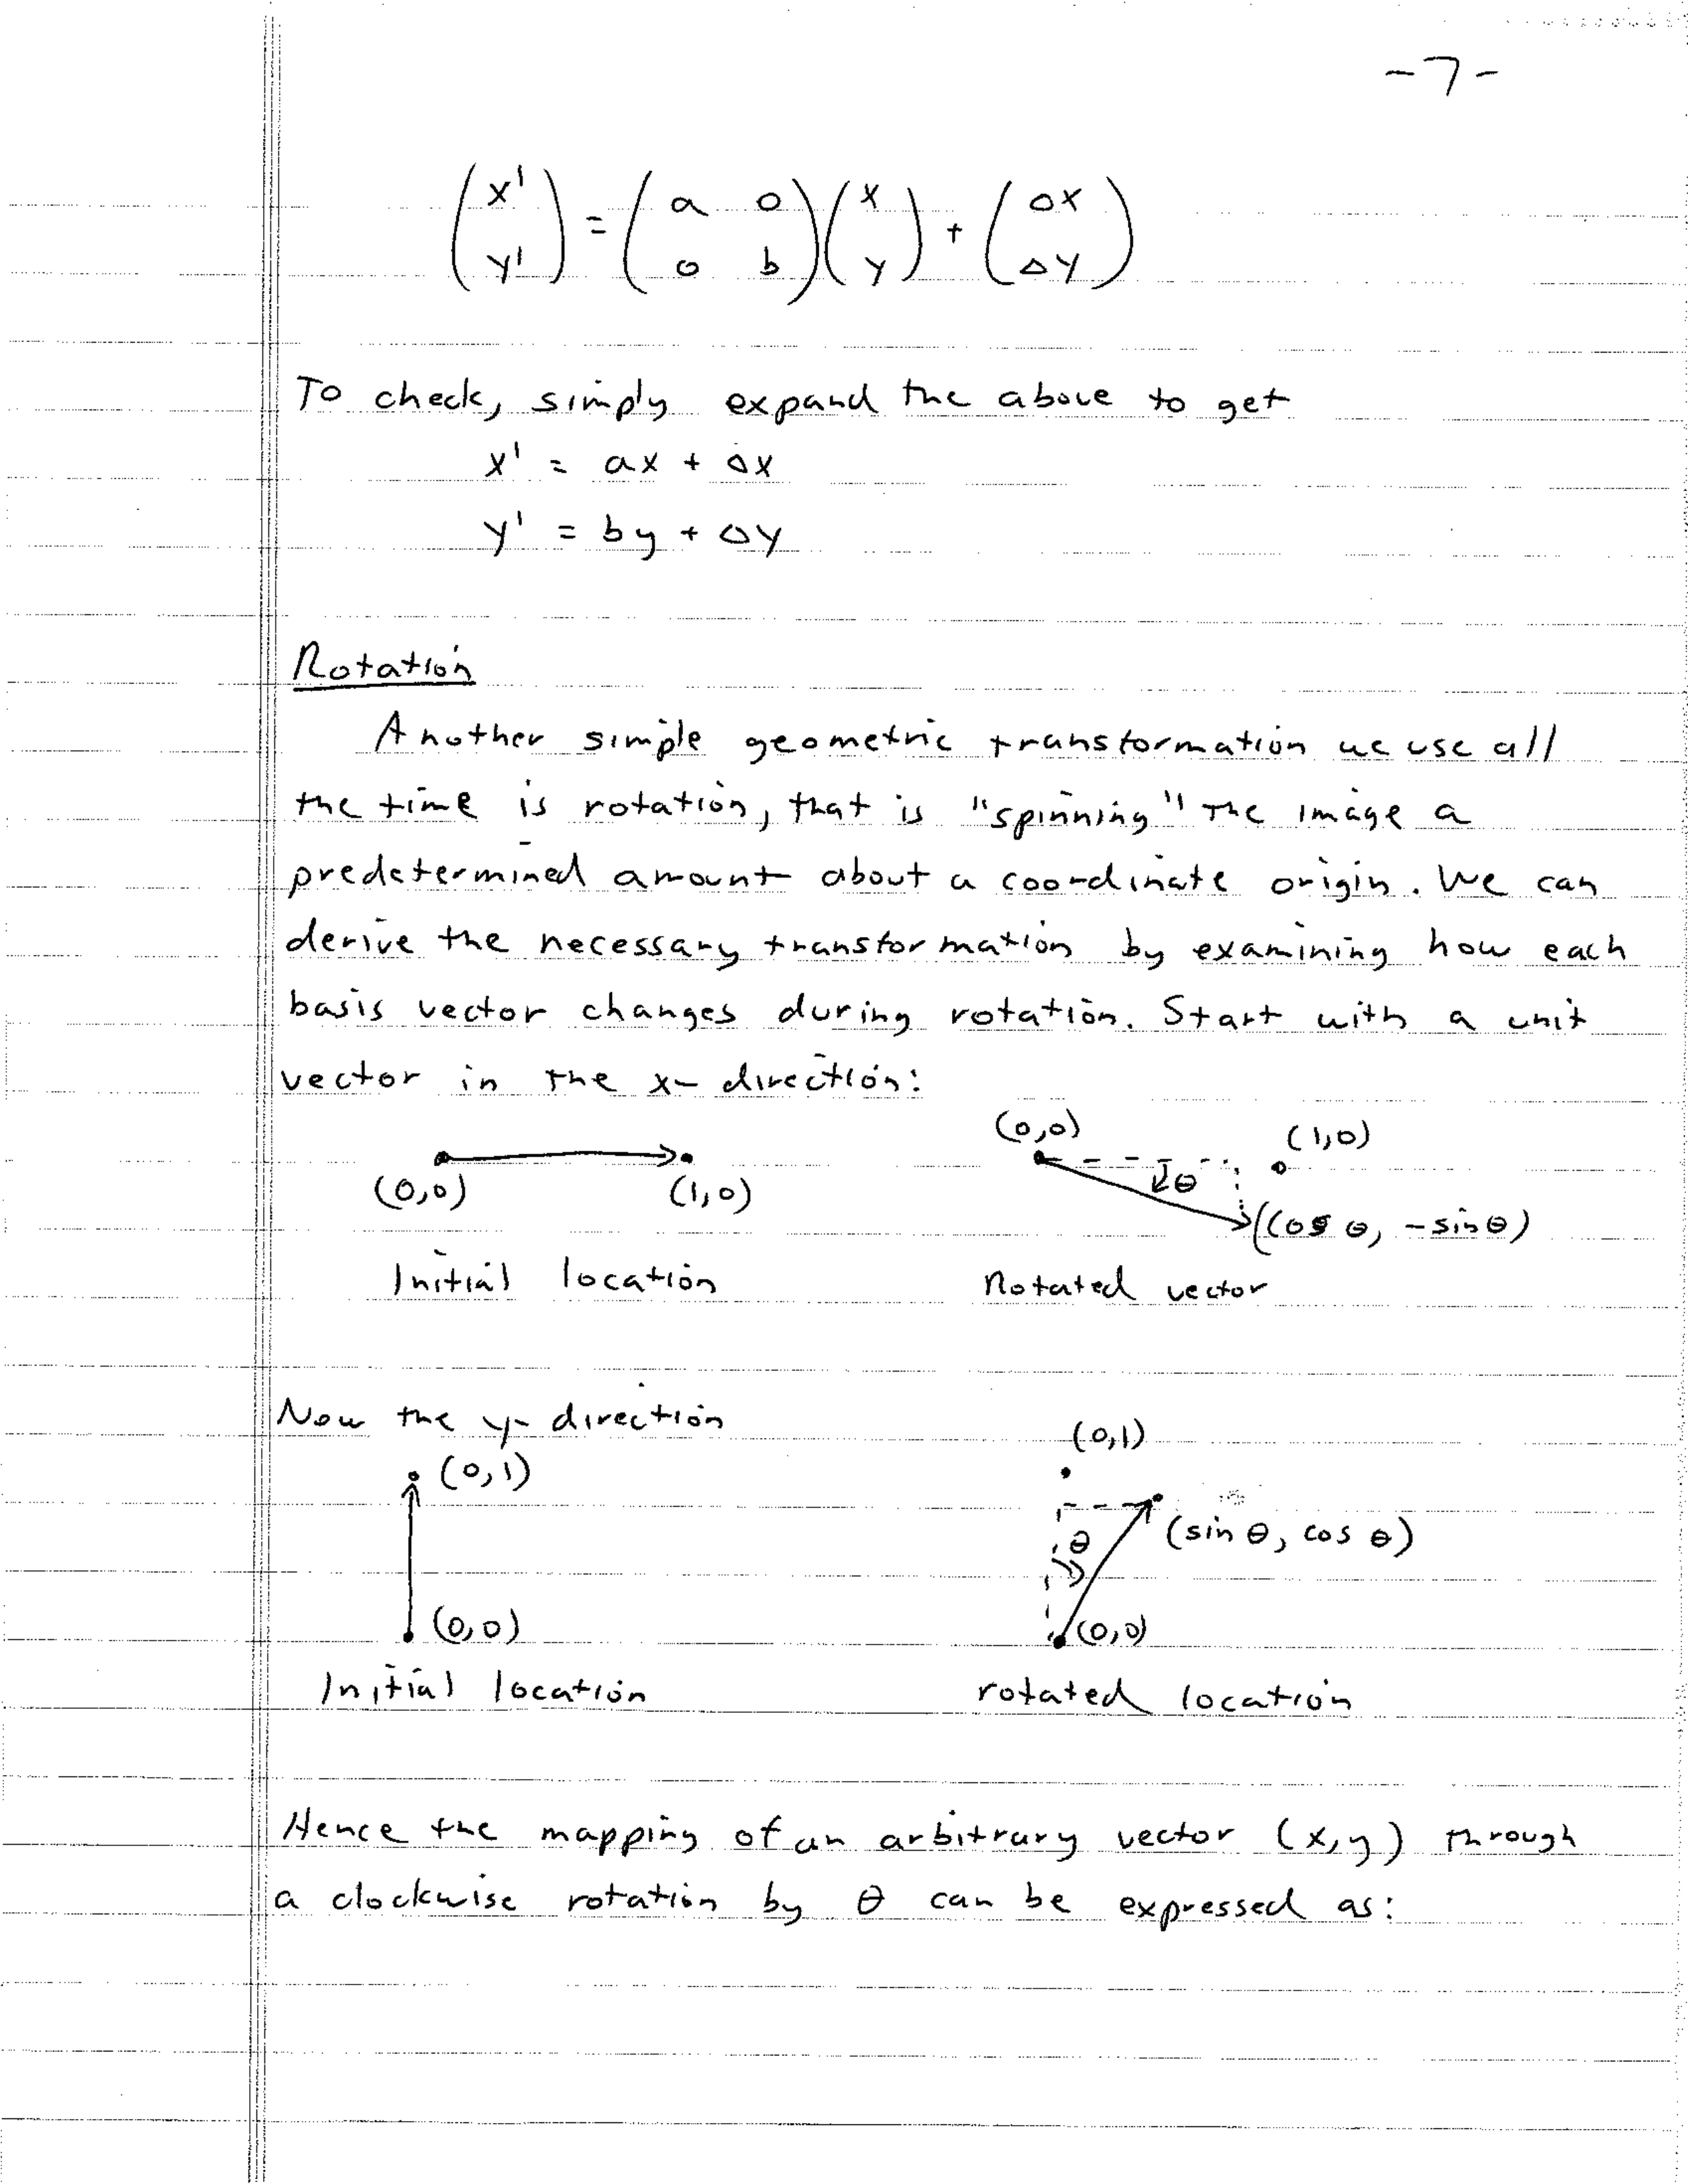 -7-
(x' y') = (a 0 0 b)(x y) + (Δx Δy)
To check, simply expand the above to get
x' = ax + Δx
y' = by + Δy
Rotation
Another simple geometric transformation we use all
the time is rotation, that is "spinning" the image a
predetermined amount about a coordinate origin. We can
derive the necessary transformation by examining how each
basis vector changes during rotation. Start with a unit
vector in the x-direction:
(0,0) (1,0)
Initial location
(0,0) (1,0)
θ
(cos θ, -sin θ)
Rotated vector
Now the y-direction
(0,1)
(0,0)
Initial location
(0,1)
θ (sin θ, cos θ)
(0,0)
rotated location
Hence the mapping of an arbitrary vector (x,y) through
a clockwise rotation by θ can be expressed as: